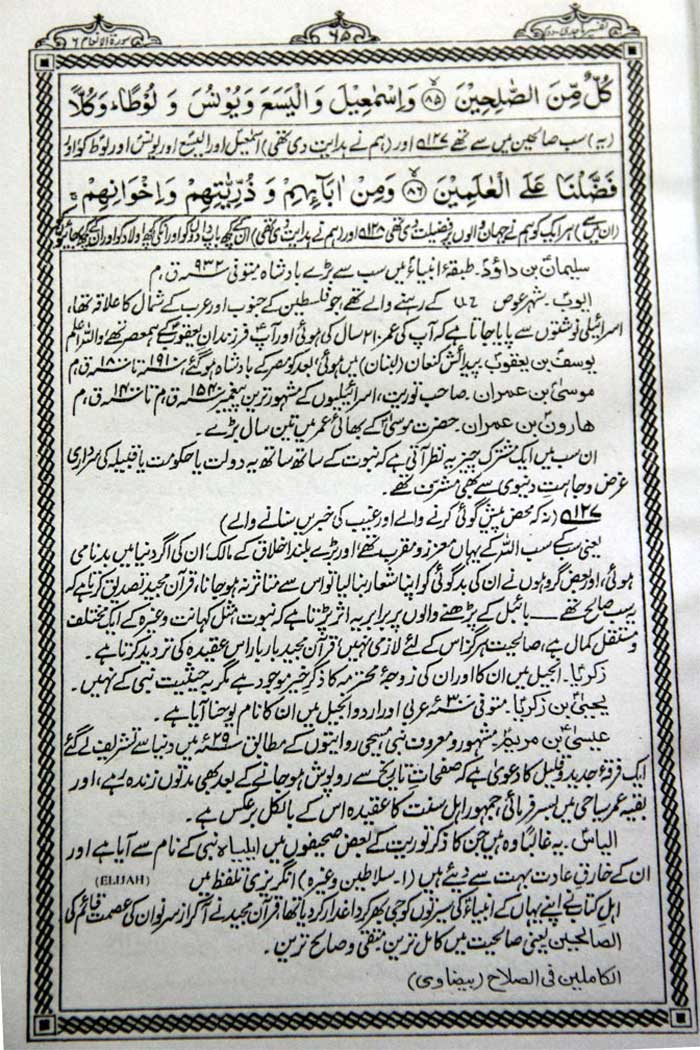 تفسیر ماجدی دوم
۶۵
سورۃ الانعام ۶
كُلٌّ مِّنَ الصّٰلِحِيْنَ ۸۵ وَاِسْمٰعِيْلَ وَالْيَسَعَ وَيُوْنُسَ وَ لُوْطًا ۚ وَكُلًّا
(یہ) سب صالحین میں سے تھے ۱۲۷ اور (ہم نے ہدایت دی تھی) اسمٰعیل اور الیسع اور یونس اور لوط کو اور
فَضَّلْنَا عَلَى الْعٰلَمِيْنَ ۸۶ وَمِنْ اٰبَآىِٕهِمْ وَ ذُرِّيّٰتِهِمْ وَاِخْوَانِهِمْ ۚ
(ان میں سے) ہر ایک کو ہم نے جہان والوں پر فضیلت دی تھی ۱۲۸ اور (ہم نے ہدایت دی تھی) ان کے کچھ باپ دادوں کو اور انکی کچھ اولاد کو اور ان کے کچھ بھائیوں کو
سلیمانؑ بن داؤدؑ۔ طبقۂ انبیاء میں سب سے بڑے بادشاہ متوفی ۹۳۲ ق، م
ایوبؑ۔ شہر عوض UZ کے رہنے والے تھے، جو فلسطین کے جنوب اور عرب کے شمال کا علاقہ تھا،
اسرائیلی نوشتوں سے پایا جاتا ہے کہ آپ کی عمر ۲۱۰ سال کی ہوئی اور آپ فرزندان یعقوبؑ کے ہمعصر تھے واللہ اعلم
یوسفؑ بن یعقوبؑ۔ پیدائش کنعان (لبنان) میں ہوئی، بعد کو مصر کے بادشاہ ہو گئے ۱۹۱۰ ق، م تا ۱۸۰۰ ق، م
موسیٰؑ بن عمران۔ صاحب توریت، اسرائیلیوں کے مشہور ترین پیغمبر ۱۵۲۰ ق، م تا ۱۴۰۰ ق، م
ہارونؑ بن عمران۔ حضرت موسیٰؑ کے بھائی عمر میں تین سال بڑے۔
ان سب میں ایک مشترک چیز یہ نظر آتی ہے کہ نبوت کے ساتھ ساتھ یہ دولت یا حکومت یا قبیلہ کی سرداری
غرض وجاہتِ دنیوی سے بھی مشرف تھے۔
۱۲۷ (نہ کہ محض پیش گوئی کرنے والے اور غیب کی خبریں سنانے والے)
یعنی سب کے سب اللہ کے یہاں معزز و مقرب تھے، اور بڑے بلند اخلاق کے مالک، ان کی اگر دنیا میں بدنامی
ہوئی، اور بعض گروہوں نے ان کی بدگوئی کو اپنا شعار بنا لیا تو اس سے متاثر نہ ہو جانا، قرآن مجید تصدیق کرتا ہے کہ
یہ سب صالح تھے —— بائبل کے پڑھنے والوں پر برابر یہ اثر پڑتا ہے کہ نبوت مثل کہانت وغیرہ کے ایک مختلف
و مستقل کمال ہے، صالحیت ہرگز اس کے لئے لازمی نہیں، قرآن مجید بار بار اس عقیدہ کی تردید کرتا ہے۔
زکریاؑ۔ انجیل میں ان کا اور ان کی زوجۂ محترمہ کا ذکر خیر موجود ہے مگر بہ حیثیت نبی کے نہیں۔
یحییٰؑ بن زکریاؑ۔ متوفی ۳۰ء عربی اور اردو انجیل میں ان کا نام یوحنا آیا ہے۔
عیسیٰؑ بن مریمؑ۔ مشہور و معروف نبی مسیحی روایتوں کے مطابق ۲۹ء میں دنیا سے تشریف لے گئے
ایک فرقۂ جدید و قلیل کا دعویٰ ہے کہ صفحاتِ تاریخ سے روپوش ہو جانے کے بعد بھی مدتوں زندہ رہے، اور
بقیہ عمر سیاحی میں بسر فرمائی، جمہور اہل سنت کا عقیدہ اس کے بالکل برعکس ہے۔
الیاسؑ۔ یہ غالباً وہ ہیں جن کا ذکر توریت کے بعض صحیفوں میں ایلیاہ نبی کے نام سے آیا ہے اور
ان کے خارقِ عادت بہت سے دیئے ہیں (۱۔ سلاطین وغیرہ) انگریزی تلفظ میں (ELIJAH)
اہل کتاب نے اپنے یہاں کے انبیاءؑ کی سیرتوں کو جی بھر کر داغدار کر دیا تھا، قرآن مجید نے آ کر از سر نو ان کی عصمت قائم کی
الصالحین یعنی صالحیت میں کامل ترین، متقی و صالح ترین۔
الکاملین فی الصلاح (بیضاوی)